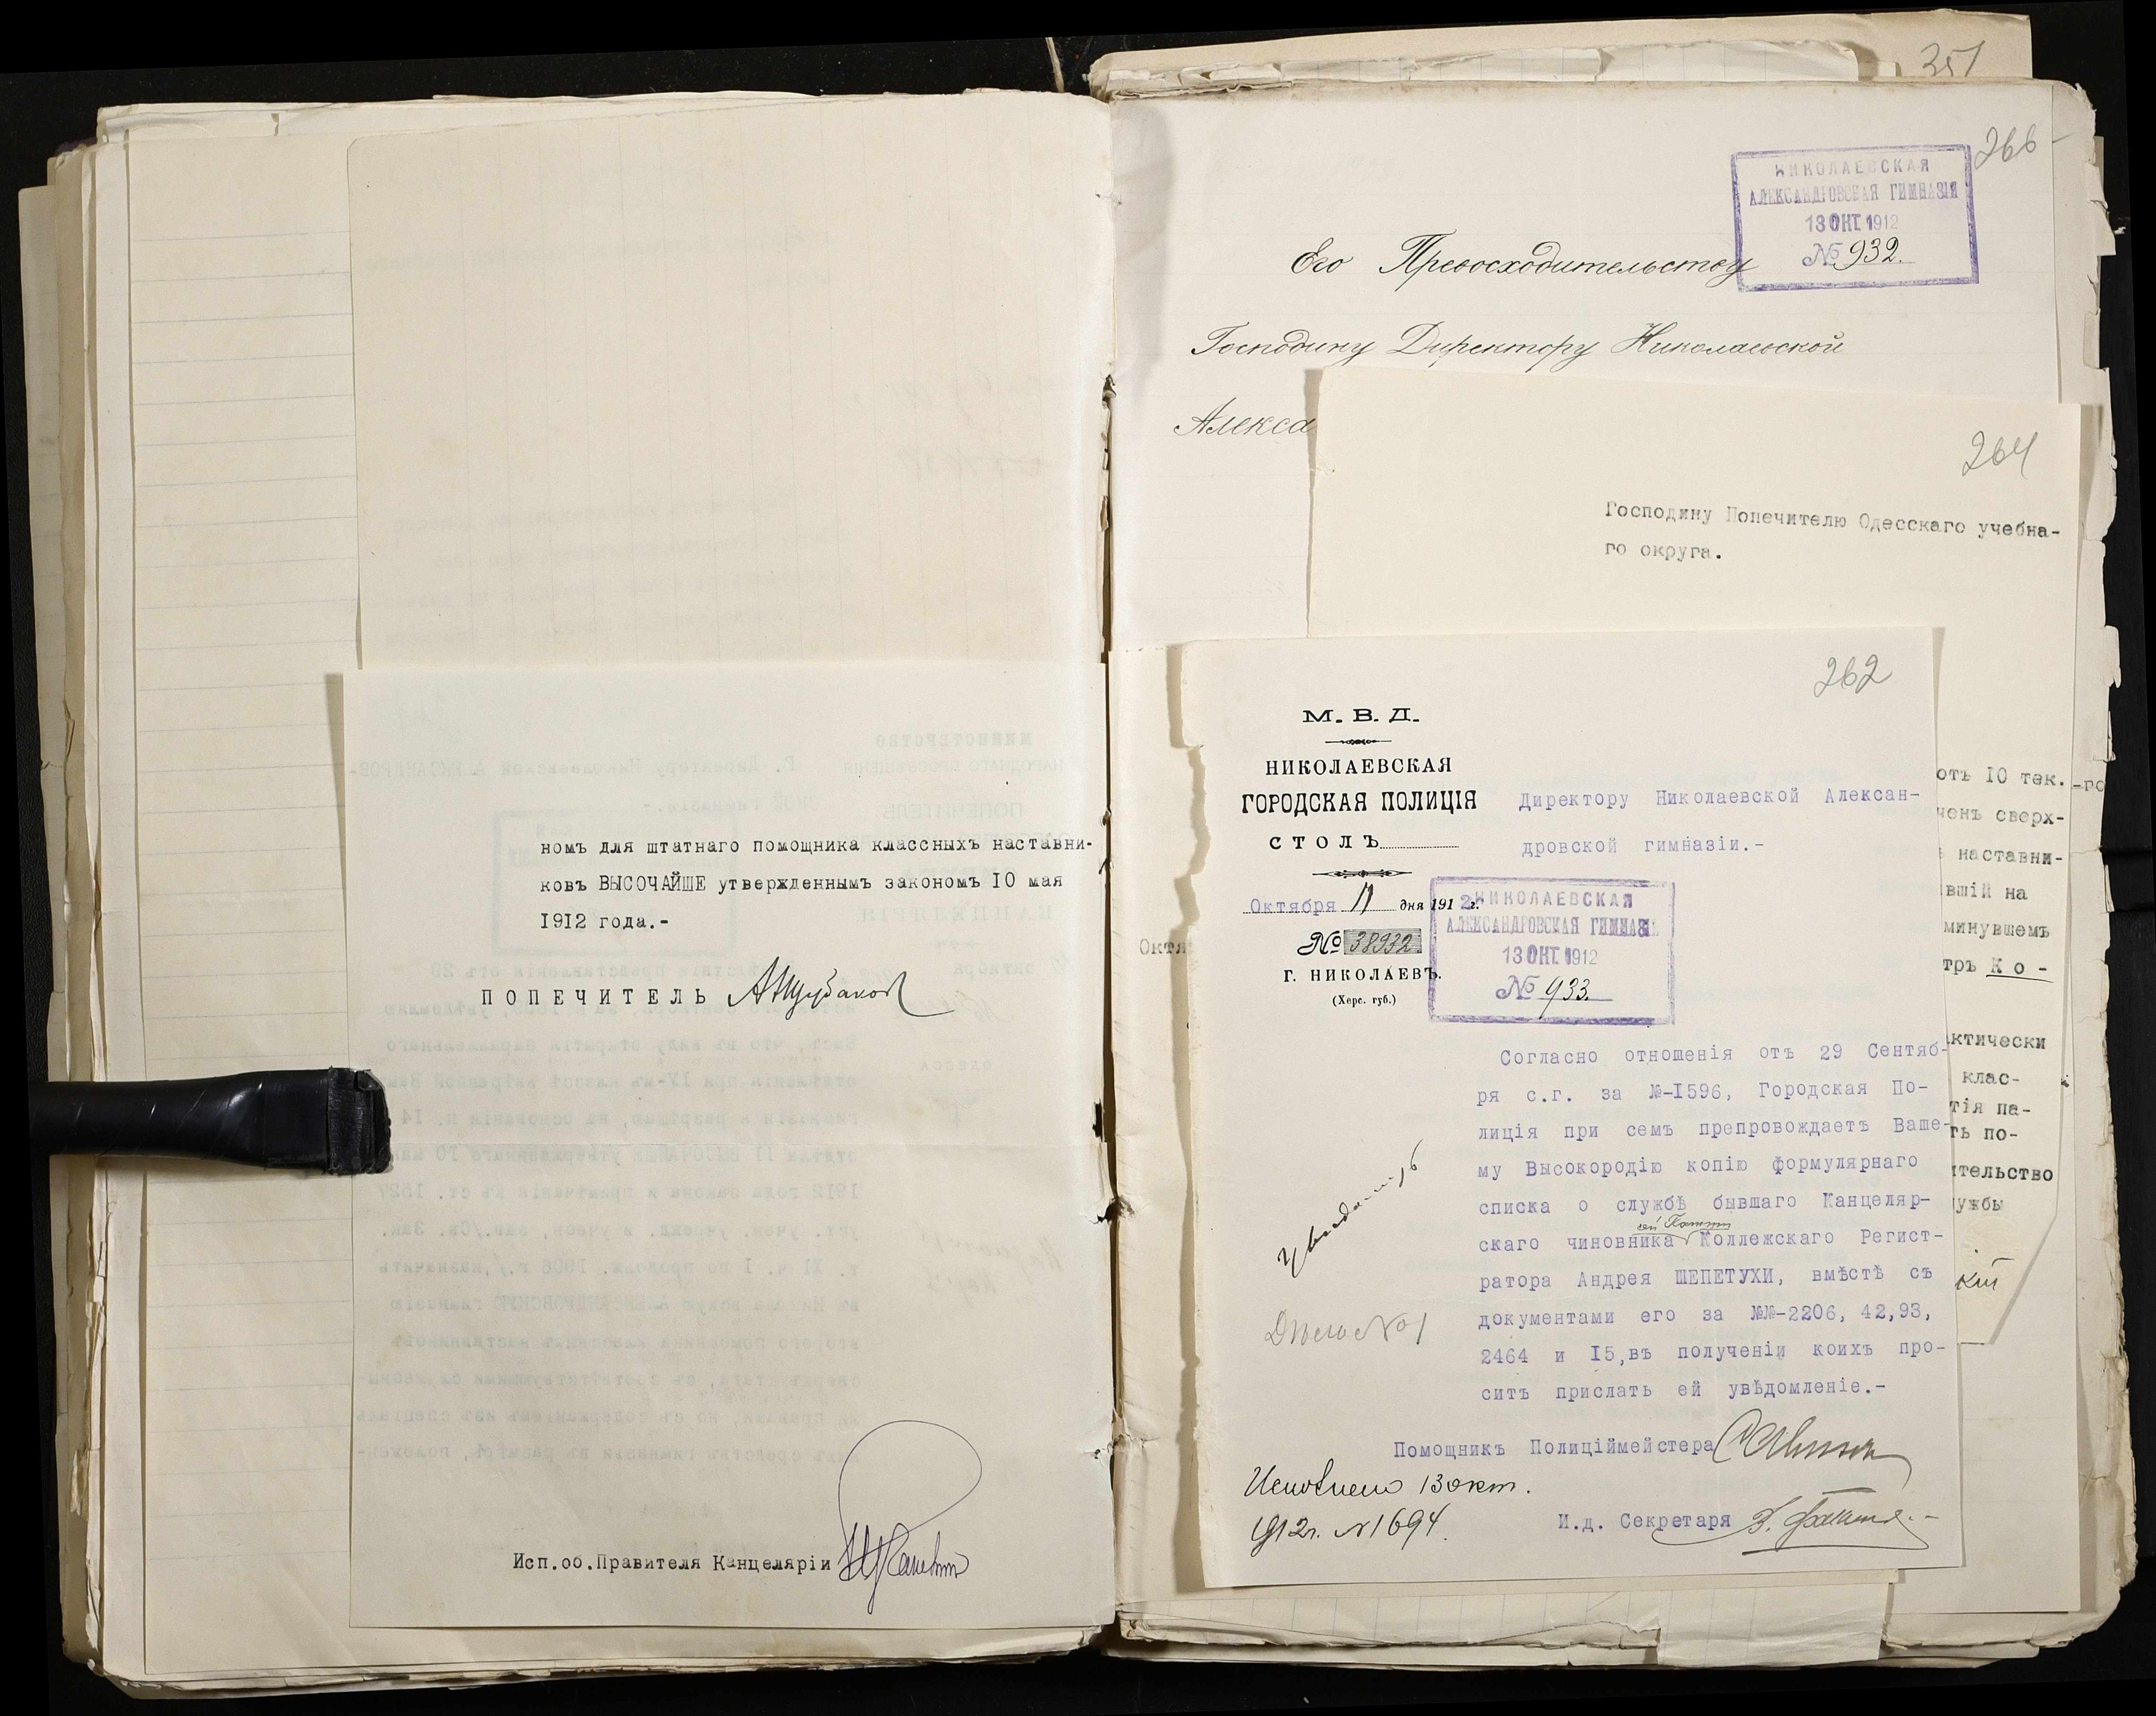 номъ для штатнаго помощника классныхъ наставни-
ковъ ВЫСОЧАЙШЕ утвержденнымъ закономъ 10 мая
1912 года.-
ПОПЕЧИТЕЛЬ
Исп.об.Правителя Канцеляріи
351
266
НИКОЛАЕВСКАЯ
АЛЕКСАНДРОВСКАЯ ГИМНАЗІЯ
13 ОКТ. 1912
№ 932.
Его Превосходительству
Господину Директору Николаевской
Алекса
264
Господину Попечителю Одесскаго учебна-
го округа.
отъ 10 тек.
ченъ сверх-
наставни-
вшій на
минувшемъ
тръ Ко-
ктически
клас-
тія па-
ть по-
ительство
ужбы
кій
Октя
262
М. В. Д.
НИКОЛАЕВСКАЯ
ГОРОДСКАЯ ПОЛИЦІЯ
СТОЛЪ
Октября 11 дня 1912 г.
№ 38932
Г. НИКОЛАЕВЪ.
(Херс. губ.)
Директору Николаевской Алексан-
дровской гимназіи.-
НИКОЛАЕВСКАЯ
АЛЕКСАНДРОВСКАЯ ГИМНАЗІЯ
13 ОКТ. 1912
№ 933.
Согласно отношенія отъ 29 Сентяб-
ря с.г. за №-1596, Городская По-
лиція при семъ препровождаетъ Ваше-
му Высокородію копію формулярнаго
списка о службѣ бывшаго Канцеляр-
скаго чиновника Коллежскаго Регист-
ратора Андрея ШЕПЕТУХИ, вмѣстѣ съ
документами его за №№-2206, 42,93,
2464 и 15,въ полученіи коихъ про-
ситъ прислать ей увѣдомленіе.-
Увѣдомить
Дѣло № 1
Помощникъ Полиціймейстера
Исполнено 13 окт.
1912 г. № 1694.
И.д. Секретаря